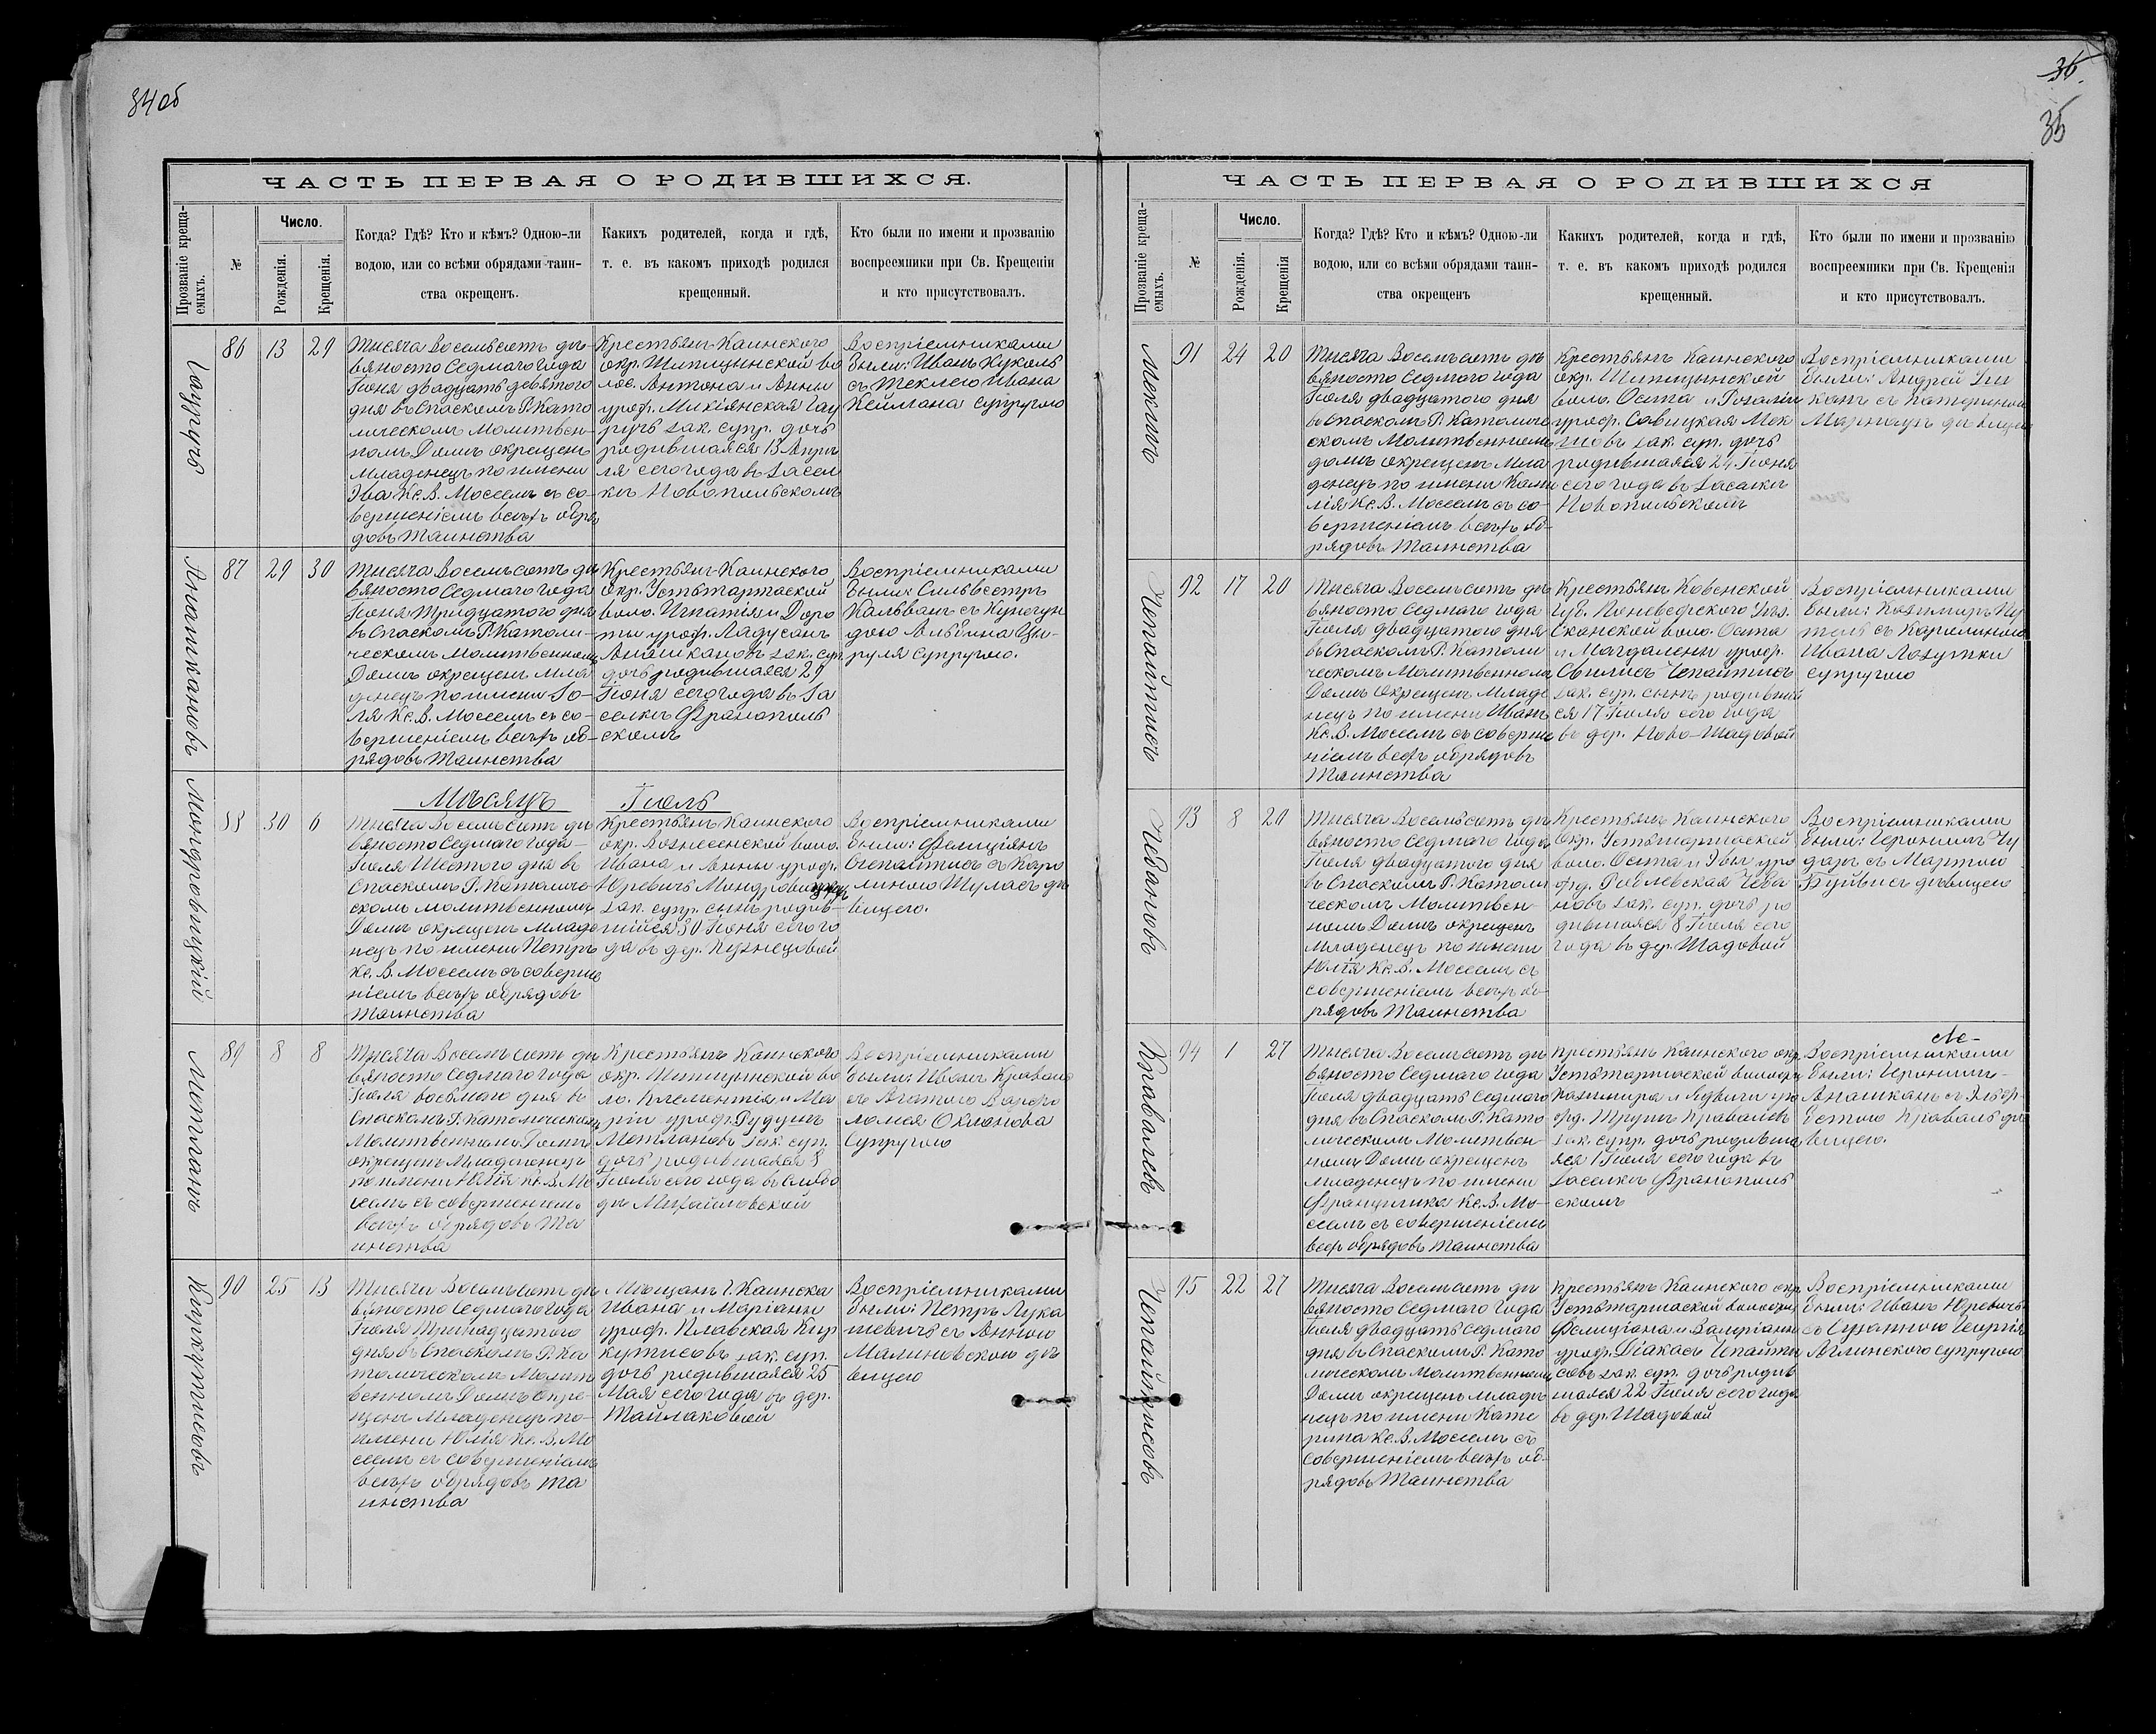 34об
ЧАСТЬ ПЕРВАЯ О РОДИВШИХСЯ.
Прозваніе креща-
емыхъ.
№
Число.
Рожденія.
Крещенія.
Когда? Гдѣ? Кто и кѣмъ? Одною-ли
водою, или со всѣми обрядами таин-
ства окрещенъ.
Какихъ родителей, когда и гдѣ,
т. е. въ какомъ приходѣ родился
крещенный.
Кто были по имени и прозванію
воспреемники при Св. Крещеніи
и кто присутствовалъ.
86 13 29
Тысяча Восемьсотъ де-
вяносто Седмаго года
Іюня двадцать девятого
дня въ Спаскомъ Р. Като
лическомъ Молитвен-
номъ Домѣ окрещенъ
Младенецъ по имени
Эва Кс. В. Моссемъ съ со-
вершеніемъ всѣхъ обря
довъ Таинства
Крестьянъ Каинского
окр. Шипицынской во
лос. Антона и Анны
урож. Микіянская Гау
ручъ зак. супр. дочь
родившаяся 13 Апрѣ
ля сего года въ засел
кѣ Новопильскомъ
Воспріемниками
были: Иванъ Куколь
съ Теклею Ивана
Кеймана супругою
Анашкановъ
87 29 30
Тысяча Восемьсотъ де
вяносто Седмаго года
Іюня Тридцатого дня
въ Спаскомъ Р. Католи-
ческомъ Молитвенномъ
Домѣ окрещенъ мла
денецъ по имени Зо-
ля Кс. В. Моссемъ съ со-
вершеніемъ всѣхъ об-
рядовъ Таинства
Крестьянъ Каинского
окр. Устьтартаской
воло. Игнатія и Доро
ты урож. Ладусанъ
Анашкановъ зак. суп.
дочь родившаяся 29
Іюня сего года въ за
селкѣ Франополь
скомъ
Воспріемниками
были: Сильвестръ
Кальванъ съ Кунегун
дою Альбина Ци-
руля супругою.
Мѣсяцъ Іюль
Мондровицкій
88 30 6
Тысяча Восемьсотъ де
вяносто Седмаго года-
Іюля Шестого дня въ
Спаскомъ Р. Католиче
скомъ молитвенномъ
Домѣ окрещенъ Младе
нецъ по имени Петръ
Кс. В. Моссемъ съ соверше
ніемъ всѣхъ обрядовъ
Таинства
Крестьянъ Каинского
окр. Вознесенской воло.
Ивана и Анны урож.
Юревичъ
зак. супр. сынъ родив-
шійся 30 Іюня сего го
да въ дер. Кузнецовой
Воспріемниками
были: Фелиціянъ
съ Каро
линою Шуласъ дѣ
вицею.
Мотлановъ
89 8 8
Тысяча Восемьсотъ де
вяносто Седмаго года
Іюля восьмаго дня въ
Спаскомъ Р. Католическомъ
Молитвенномъ Домѣ
окрещенъ Младенецъ
по имени Юлія Кс. В. Мо
семъ съ совершеніемъ
всѣхъ обрядовъ Та
инства
Крестьянъ Каинского
окр. Шипицынской во
ло. Клементія и Ма
ріи урож. Рудунъ
Мотлановъ зак. суп.
дочь родившаяся 8
Іюля сего года въ слобо
дѣ Михайловской
Воспріемниками
были: Иванъ Кроваль
съ Агатою Варфо
ломея Окланова
Супругою
Киркутисовъ
90 25 13
Тысяча Восемьсотъ де
вяносто Седмаго года
Іюля Тринадцатого
дня въ Спаскомъ Р. Ка
толическомъ Молит
венномъ Домѣ окре-
щенъ Младенецъ по-
имени Юлія Кс. В. Мо
семъ съ совершеніемъ
всѣхъ обрядовъ Та
инства
Мѣщанъ г. Каинска
Ивана и Маріанны
урож. Плавская Кир
кутисовъ зак. суп.
дочь родившаяся 25
Мая сего года въ дер.
Тайлаковой
Воспріемниками
были: Петръ Лука
шевичъ съ Анною
Малиновскою дѣ
вицею
36.
35
ЧАСТЬ ПЕРВАЯ О РОДИВШИХСЯ
Прозваніе креща-
емыхъ.
№
Число.
Рожденія.
Крещенія
Когда? Гдѣ? Кто и кѣмъ? Одною-ли
водою, или со всѣми обрядами таин-
ства окрещенъ
Какихъ родителей, когда и гдѣ,
т. е. въ какомъ приходѣ родился
крещенный.
Кто были по имени и прозванію
воспреемники при Св. Крещенія
и кто присутствовалъ.
91 24 20
Тысяча Восемьсотъ де
вяносто Седмаго года
Іюля двадцатого дня
въ Спаскомъ Р. Католиче
скомъ Молитвенномъ
домѣ окрещенъ Мла
денецъ по имени Ками
лія Кс. В. Моссемъ съ со-
вершеніемъ всѣхъ об-
рядовъ Таинства
Крестьянъ Каинского
окр. Шипицынской
воло. Осипа и Розаліи
урож. Савицкая
зак. суп. дочь
родившаяся 24 Іюня
сего года въ заселкѣ
Новопильскомъ
Воспріемниками
были: Андрей
съ Катериною
дѣвицею
92 17 20
Тысяча Восемьсотъ де
вяносто Седмаго года
Іюля двадцатого дня
въ Спаскомъ Р. Католи
ческомъ Молитвенномъ
Домѣ Окрещенъ Младе
нецъ по имени Иванъ
Кс. В. Моссемъ съ соверше
ніемъ всѣхъ обрядовъ
Таинства
Крестьянъ Ковенской
губ. Поневежского уѣз.
воло. Осипа
и Магдалены урож.
зак. суп. сынъ родивший
ся 17 Іюля сего года
въ дер. Ново-Шадовой
Воспріемниками
были: Казимиръ
съ Каролиною
Ивана Лазутки
супругою
93 8 20
Тысяча Восемьсотъ де
вяносто Седмаго года
Іюля двадцатого дня
въ Спаскомъ Р. Католи
ческомъ Молитвен-
номъ Домѣ окрещенъ
Младенецъ по имени
Юлія Кс. В. Моссемъ съ
совершеніемъ всѣхъ об-
рядовъ Таинства
Крестьянъ Каинского
окр. Устьтартаской
воло. Осипа и Эвы уро
зак. суп. дочь ро
дившаяся 8 Іюля сего
года въ дер. Шадовой
Воспріемниками
были: Иеронимъ Чу
даръ съ Мартою
дѣвицею
Кравалевъ
94 1 27
Тысяча Восемьсотъ де
вяносто Седмаго года
Іюля двадцать седмого
дня въ Спаскомъ Р. Като
лическомъ Молитвен-
номъ Домѣ окрещенъ
младенецъ по имени
Францишка Кс. В. Мо-
семъ съ совершеніемъ
всѣхъ обрядовъ Таинства
Крестьянъ Каинского окр.
Устьтартаской волости
Казимира и Ядвиги уро
жд. Кравалевъ
зак. супр. дочь родивша
яся 1 Іюля сего года въ
заселкѣ Франополь
скомъ
Воспріемниками
были: Иеронимъ
Анашканъ съ Эльж-
бетою Краваль дѣ
вицею.
95 22 27
Тысяча Восемьсотъ де
вяносто Седмаго года
Іюля двадцать седмаго
дня въ Спаскомъ Р. Като
лическомъ Молитвенномъ
Домѣ окрещенъ младе
нецъ по имени Кате
рина Кс. В. Моссемъ съ
совершеніемъ всѣхъ об-
рядовъ Таинства
Крестьянъ Каинского окр.
Устьтартаской волости,
Фелиціана и Валеріанны
зак. суп. дочь родив
шаяся 22 Іюля сего года
въ дер. Шадовой
Воспріемниками
были: Иванъ Юревичъ
съ Сузанною Георгія
супругою